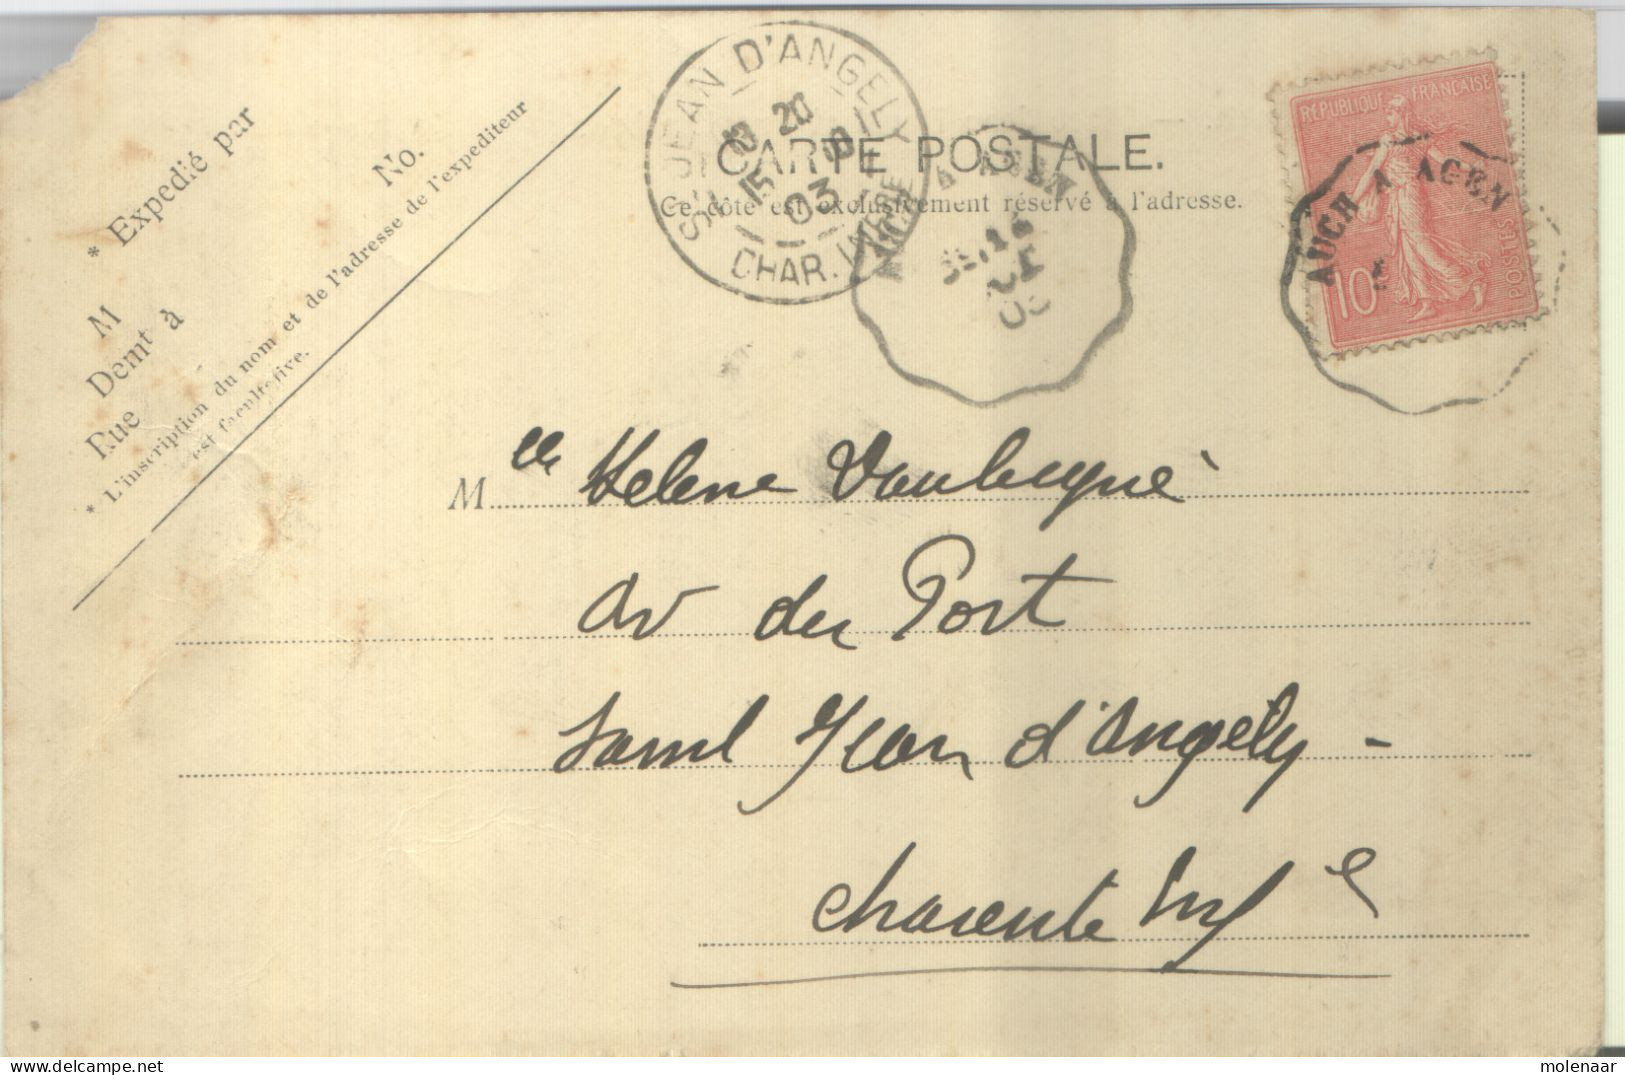 * Expedié par
No.
M
Demt à
Rue
* L'inscription du nom et de l'adresse de l'expediteur
est facultative.
ST JEAN D'ANGELY
20
15
03
CHAR. INFRE
CARTE POSTALE.
Ce côte est exclusivement réservé à l'adresse.
A AGEN
14
03
REPUBLIQUE FRANÇAISE
POSTES
10c
AUCH A AGEN
Melle Helene Vaubugné
av du Port
Saint Jean d'Angely -
Charente Infe
molenaar